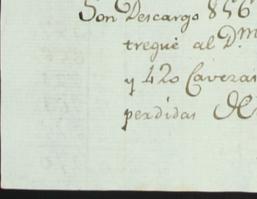 Son Descargo 856
tregué al D.ⁿ
y 420 Caveza
perdidas